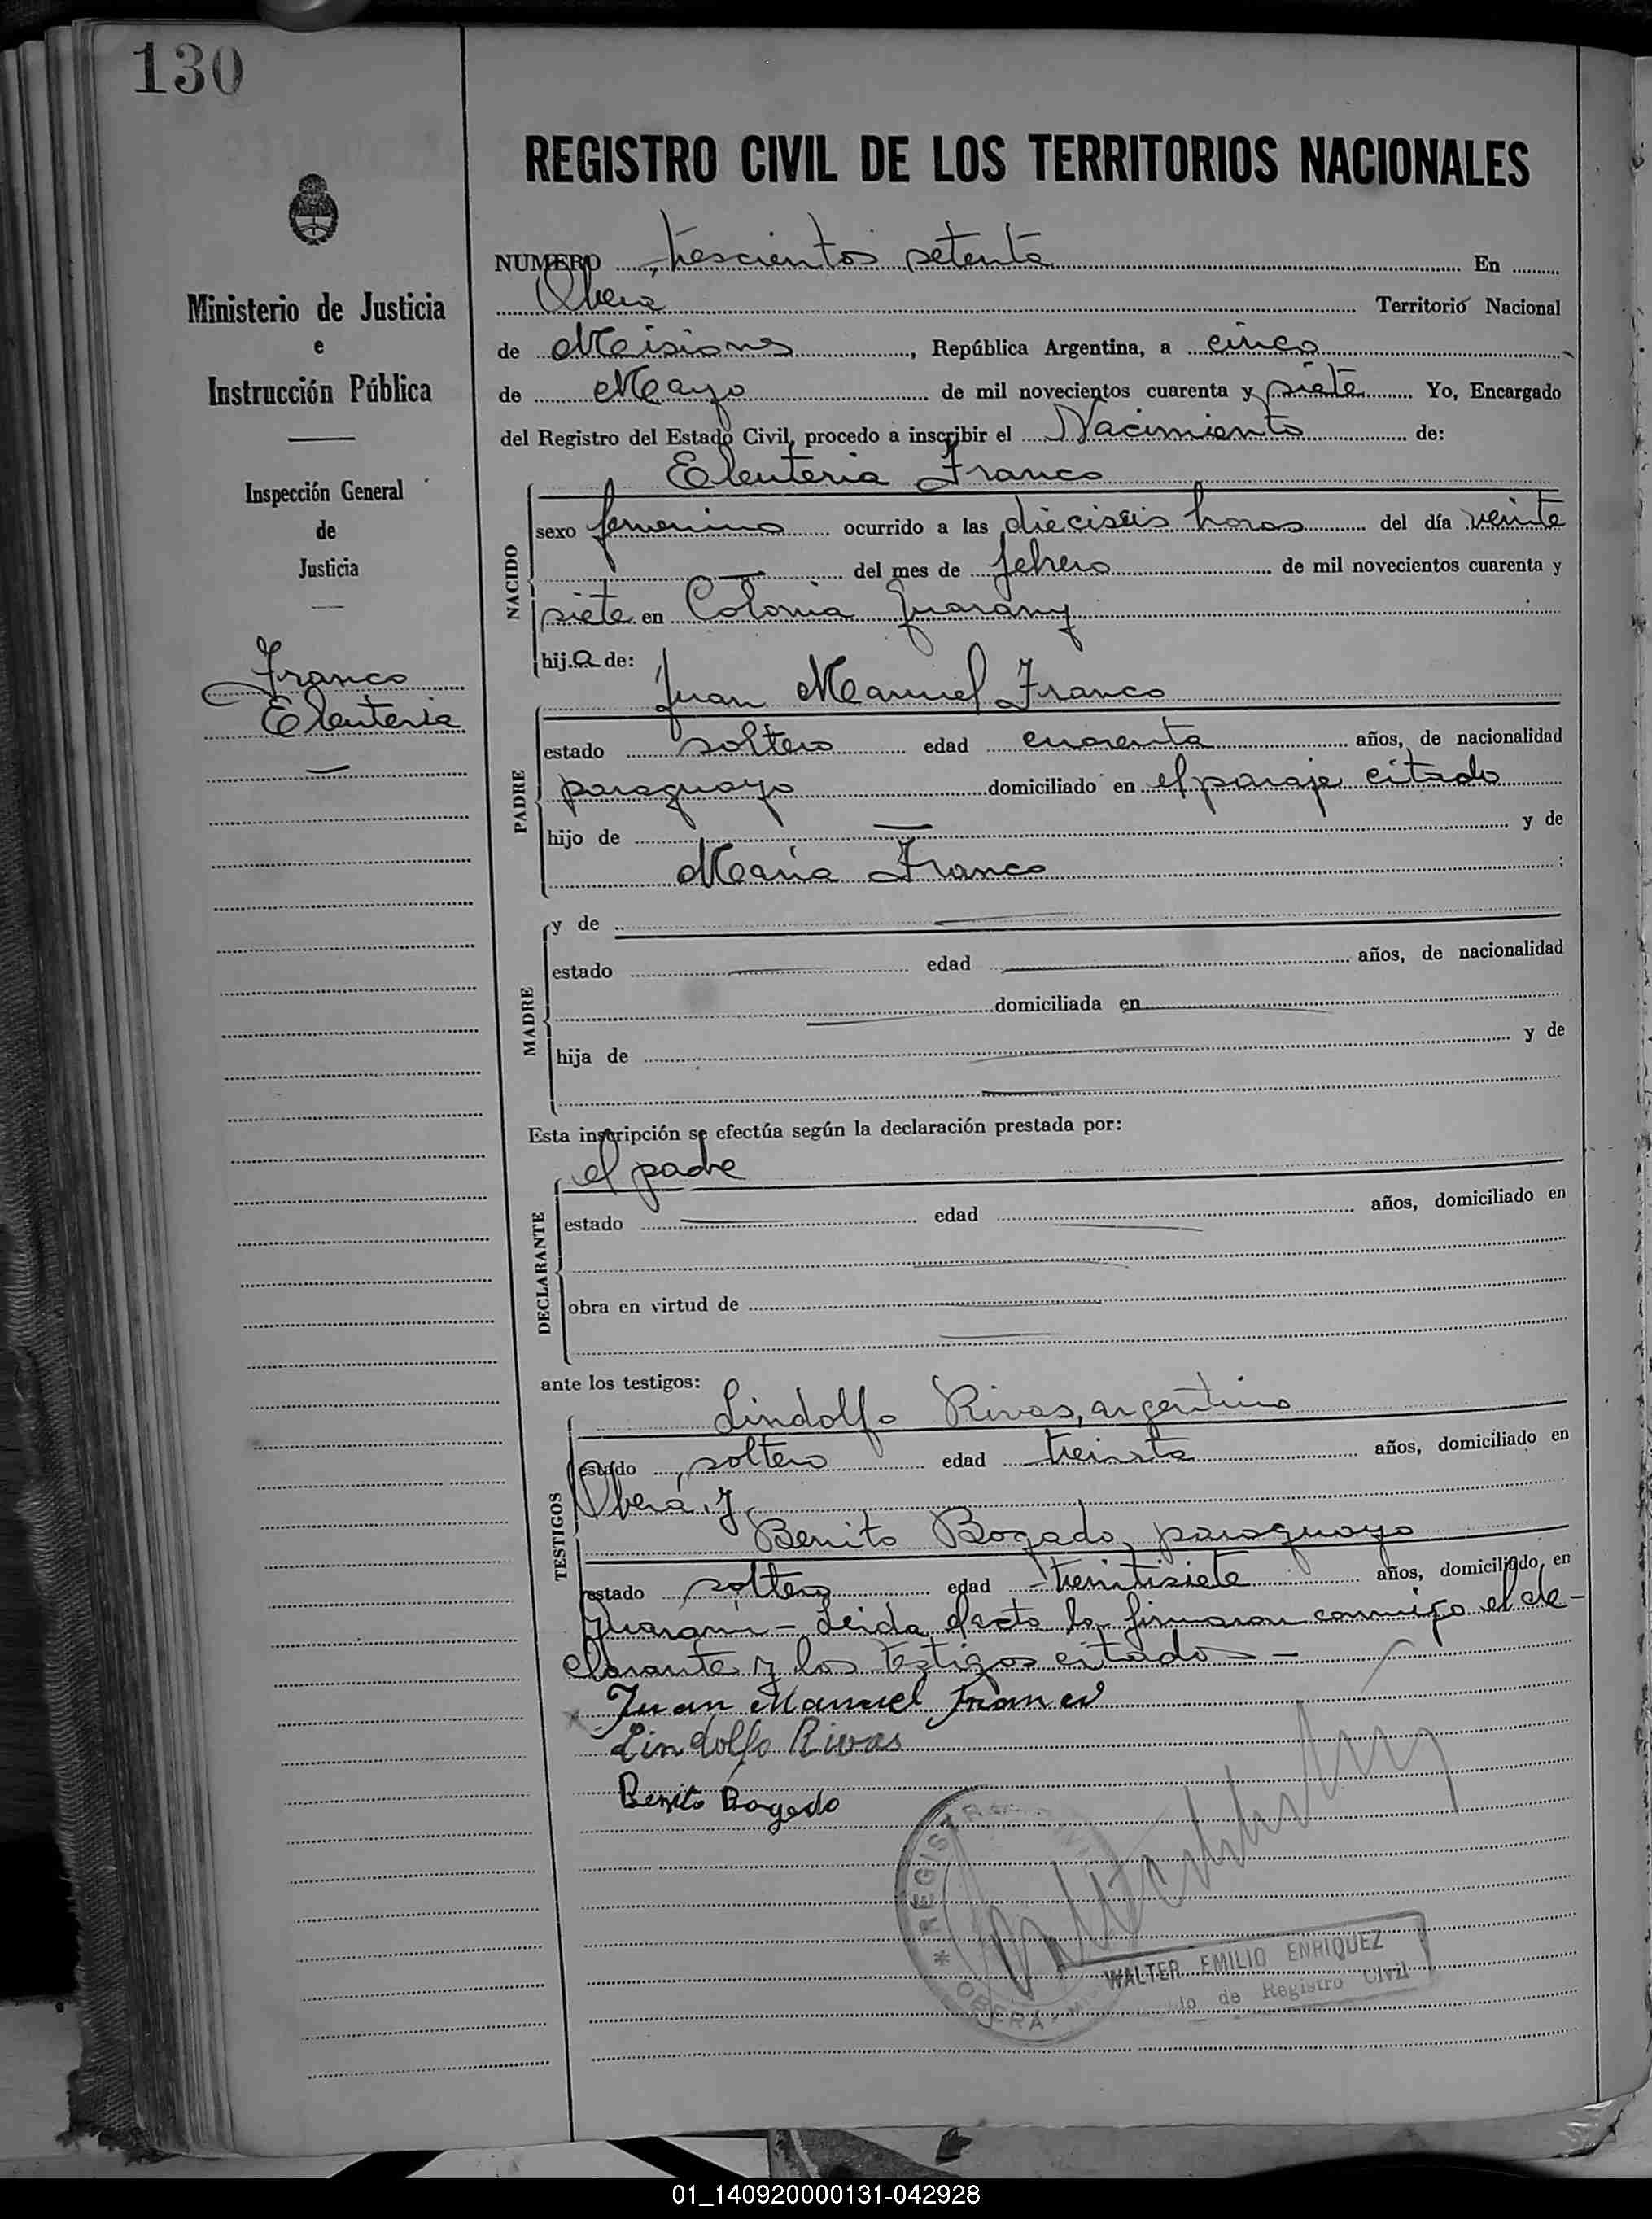 130
REGISTRO CIVIL DE LOS TERRITORIOS NACIONALES
Ministerio de Justicia
e
Instrucción Pública
Inspección General
de
Justicia
Franco
Eleuteria
NUMERO trescientos setenta En
Oberá Territorio Nacional
de Misiones, República Argentina, a cinco
de Mayo de mil novecientos cuarenta y siete Yo, Encargado
del Registro del Estado Civil, procedo a inscribir el Nacimiento de:
Eleuteria Franco
NACIDO
sexo femenino ocurrido a las dieciseis horas del día veinte
— del mes de febrero de mil novecientos cuarenta y
siete en Colonia Guarany
hija de:
Juan Manuel Franco
PADRE
estado soltero edad cuarenta años, de nacionalidad
paraguayo domiciliado en el paraje citado
hijo de — y de
María Franco ;
MADRE
y de —
estado — edad — años, de nacionalidad
— domiciliada en —
hija de — y de
—
Esta inscripción se efectúa según la declaración prestada por:
el padre
DECLARANTE
estado — edad — años, domiciliado en
—
obra en virtud de —
—
ante los testigos:
Lindolfo Rivas, argentino
TESTIGOS
estado soltero edad treinta años, domiciliado en
Oberá y
Benito Bogado, paraguayo
estado soltero edad treintisiete años, domiciliado en
Guaraní - Leída el acta la firmaron conmigo el de-
clarante y los testigos citados -
Juan Manuel Franco
Lindolfo Rivas
Benito Bogado
* REGISTRO
OBERÁ
WALTER EMILIO ENRIQUEZ
de Registro Civil
01_140920000131-042928